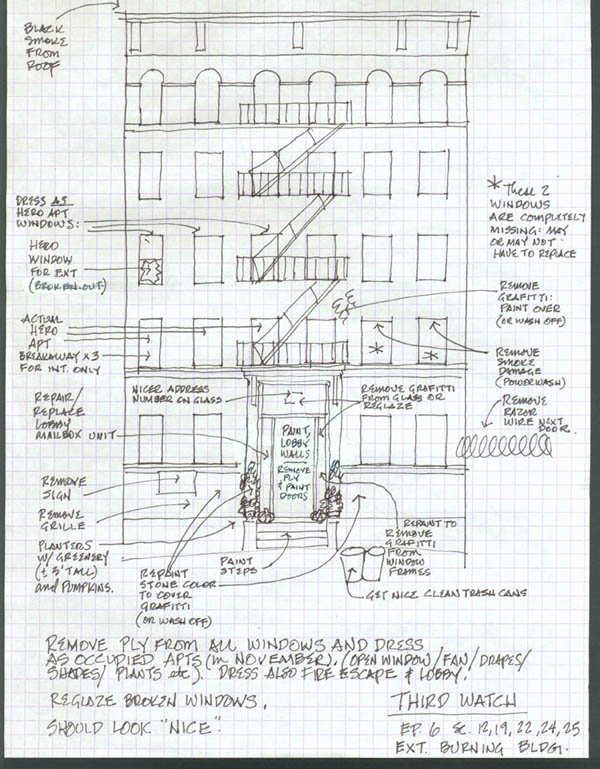 BLACK
SMOKE
FROM
ROOF
DRESS AS
HERO APT
WINDOWS:
HERO
WINDOW
FOR EXT
(BROKEN-OUT)
ACTUAL
HERO
APT
BREAKAWAY x 3
FOR INT. ONLY
REPAIR/
REPLACE
LOBBY
MAILBOX UNIT
REMOVE
SIGN
REMOVE
GRILLE
PLANTERS
W/ GREENERY
(± 3' TALL)
and PUMPKINS.
REPAINT
STONE COLOR
TO COVER
GRAFITTI
(OR WASH OFF)
PAINT
STEPS
NICER ADDRESS
NUMBER ON GLASS
PAINT,
LOBBY
WALLS
REMOVE
PLY
& PAINT
DOORS
* These 2
WINDOWS
ARE COMPLETELY
MISSING: MAY
OR MAY NOT
HAVE TO REPLACE
REMOVE
GRAFITTI:
PAINT OVER
(OR WASH OFF)
* *
REMOVE
SMOKE
DAMAGE
(POWERWASH)
REMOVE GRAFITTI
FROM GLASS OR
REGLAZE
REMOVE
RAZOR
WIRE NEXT
DOOR.
REPAINT TO
REMOVE
GRAFITTI
FROM
WINDOW
FRAMES
GET NICE CLEAN TRASH CANS
REMOVE PLY FROM ALL WINDOWS AND DRESS
AS OCCUPIED APTS (in NOVEMBER). (OPEN WINDOW/FAN/DRAPES/
SHADES/ PLANTS etc). DRESS ALSO FIRE ESCAPE & LOBBY.
REGLAZE BROKEN WINDOWS.
SHOULD LOOK "NICE".
THIRD WATCH
EP. 6 SC. 12, 19, 22, 24, 25
EXT. BURNING BLDG.